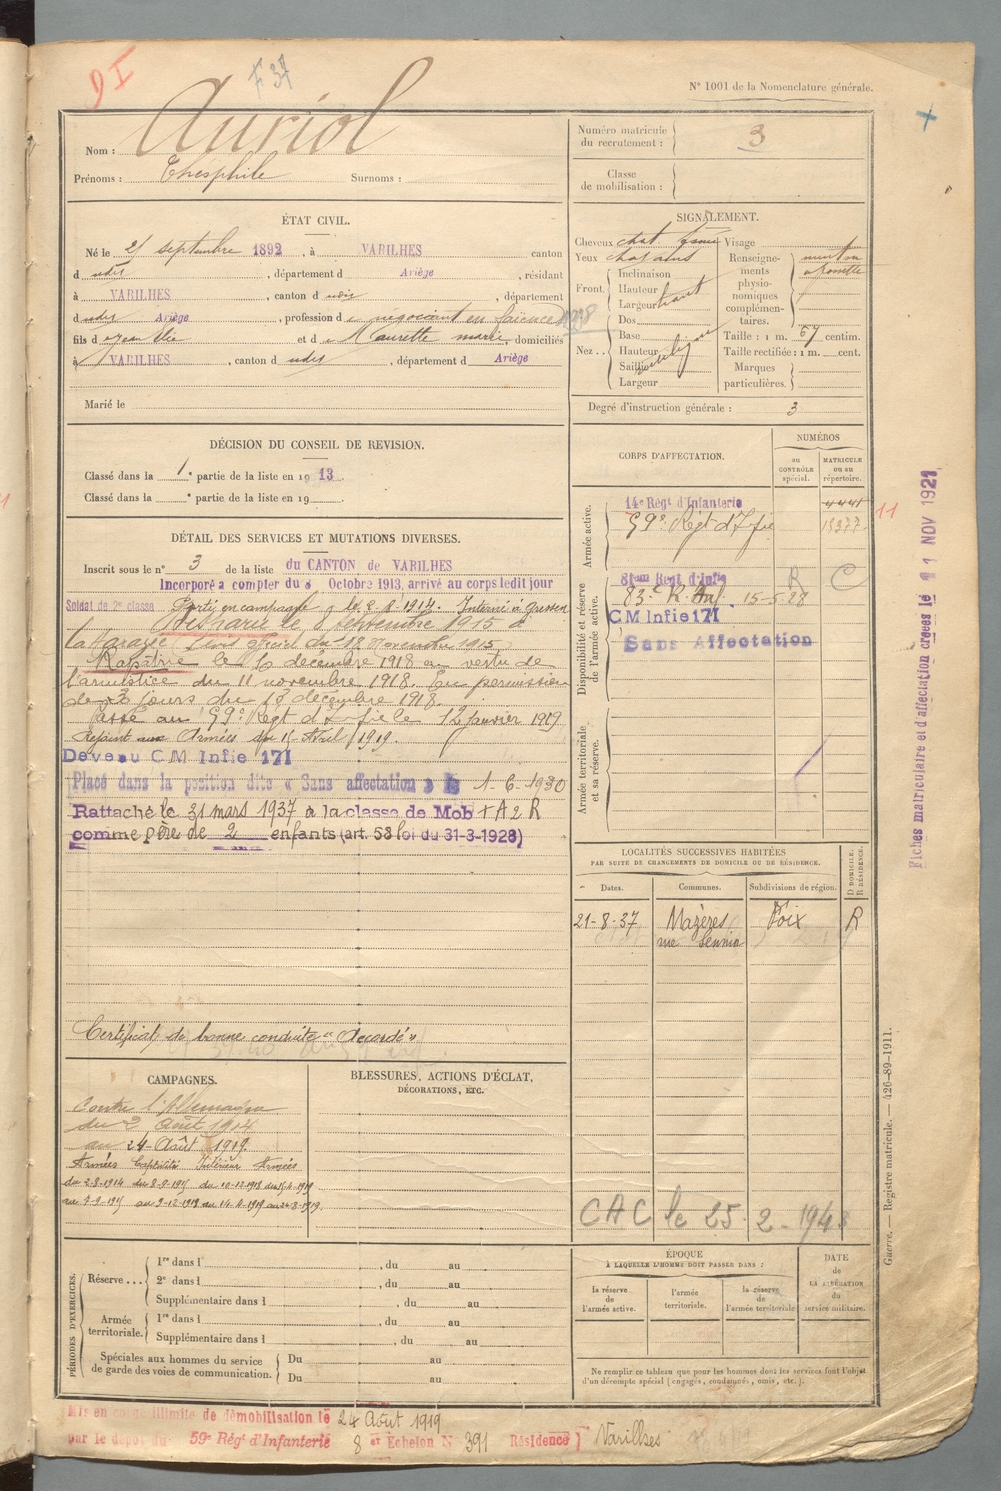 F 37
N° 1001 de la Nomenclature générale.
Nom : Auriol
Prénoms : Théophile Surnoms :
Numéro matricule du recrutement : 3
Classe de mobilisation :
ÉTAT CIVIL.
Né le 21 septembre 1892, à VARILHES canton
d udis, département d Ariège, résidant
à VARILHES, canton d udis, département
d udis Ariège, profession de négociant en faïence
fils d et d Maurette marie, domiciliés
à VARILHES, canton d udis, département d Ariège
Marié le
SIGNALEMENT.
Cheveux chat. foncé Visage
Yeux chatains
Front. Inclinaison
Hauteur
Largeur haut
Dos
Nez .. Base
Hauteur
Saillie
Largeur
Renseignements physionomiques complémentaires. menton à fossette
Taille : 1 m. 67 centim.
Taille rectifiée : 1 m. cent.
Marques particulières.
Degré d'instruction générale : 3
DÉCISION DU CONSEIL DE REVISION.
Classé dans la 1e partie de la liste en 1913
Classé dans la e partie de la liste en 19
DÉTAIL DES SERVICES ET MUTATIONS DIVERSES.
Inscrit sous le n° 3 de la liste du CANTON de VARILHES
Incorporé a compter du 8 Octobre 1913, arrivé au corps ledit jour
Soldat de 2e classe Parti en campagne le 2 8 1914. Interné à
le 8 septembre 1915 à
la Haraye 18 novembre 1915
Rapatrié le 16 decembre 1918 en vertu de
l'armistice du 11 novembre 1918. En permission
de jours du 13 décembre 1918.
Passé au 59e Régt d'Infie le 12 janvier 1919
Rejoint aux Armées du 15 Avril 1919.
Devenu C M Infie 171
Placé dans la position dite « Sans affectation » le 1-6-1930
Rattaché le 31 mars 1937 à la classe de Mob + A 2 R
comme père de 2 enfants (art. 58 loi du 31-3-1928)
Certificat de bonne conduite "Accordé"
CORPS D'AFFECTATION.
NUMÉROS
au CONTRÔLE spécial.
MATRICULE ou au répertoire.
Armée active.
14e Régt d'Infanterie 4441
59e Régt d'Infie 15377
11
Disponibilité et réserve de l'armée active.
81em Regt d'Infie R C
83e R. Inf. 15-5-28
C M Infie 171
Sans Affectation
Armée territoriale et sa réserve.
Fiches matriculaire et d'affectation créées le 11 NOV 1921
LOCALITÉS SUCCESSIVES HABITÉES
PAR SUITE DE CHANGEMENTS DE DOMICILE OU DE RÉSIDENCE.
Dates. Communes. Subdivisions de région. D DOMICILE. R RÉSIDENCE.
21-8-37 Mazères Foix R
rue
CAC le 25-2-1943
CAMPAGNES.
Contre l'Allemagne
du 2 Août 1914
au 24 Août 1919.
Armées Captivité Intérieur Armées
du 2-8-1914 du 8-9-1915 du 10-12-1918 du 15-4-1919
au 7-9-1915 au 9-12-1918 au 14-4-1919 au 24-8-1919
BLESSURES, ACTIONS D'ÉCLAT,
DÉCORATIONS, ETC.
PÉRIODES D'EXERCICES.
Réserve ... 1re dans l , du au
2e dans l , du au
Supplémentaire dans l , du au
Armée territoriale. 1re dans l , du au
Supplémentaire dans l , du au
Spéciales aux hommes du service de garde des voies de communication. Du au
Du au
ÉPOQUE
À LAQUELLE L'HOMME DOIT PASSER DANS :
la réserve de l'armée active.
l'armée territoriale.
la réserve de l'armée territoriale
DATE de LA LIBÉRATION du service militaire.
Ne remplir ce tableau que pour les hommes dont les services font l'objet
d'un décompte spécial (engagés, condamnés, omis, etc.).
Guerre. — Registre matricule. — 426-89-1911.
Mis en congé illimité de démobilisation le 24 Août 1919
par le dépôt du 59e Régt d'Infanterie 8 e Echelon N° 391 Résidence Varilhes